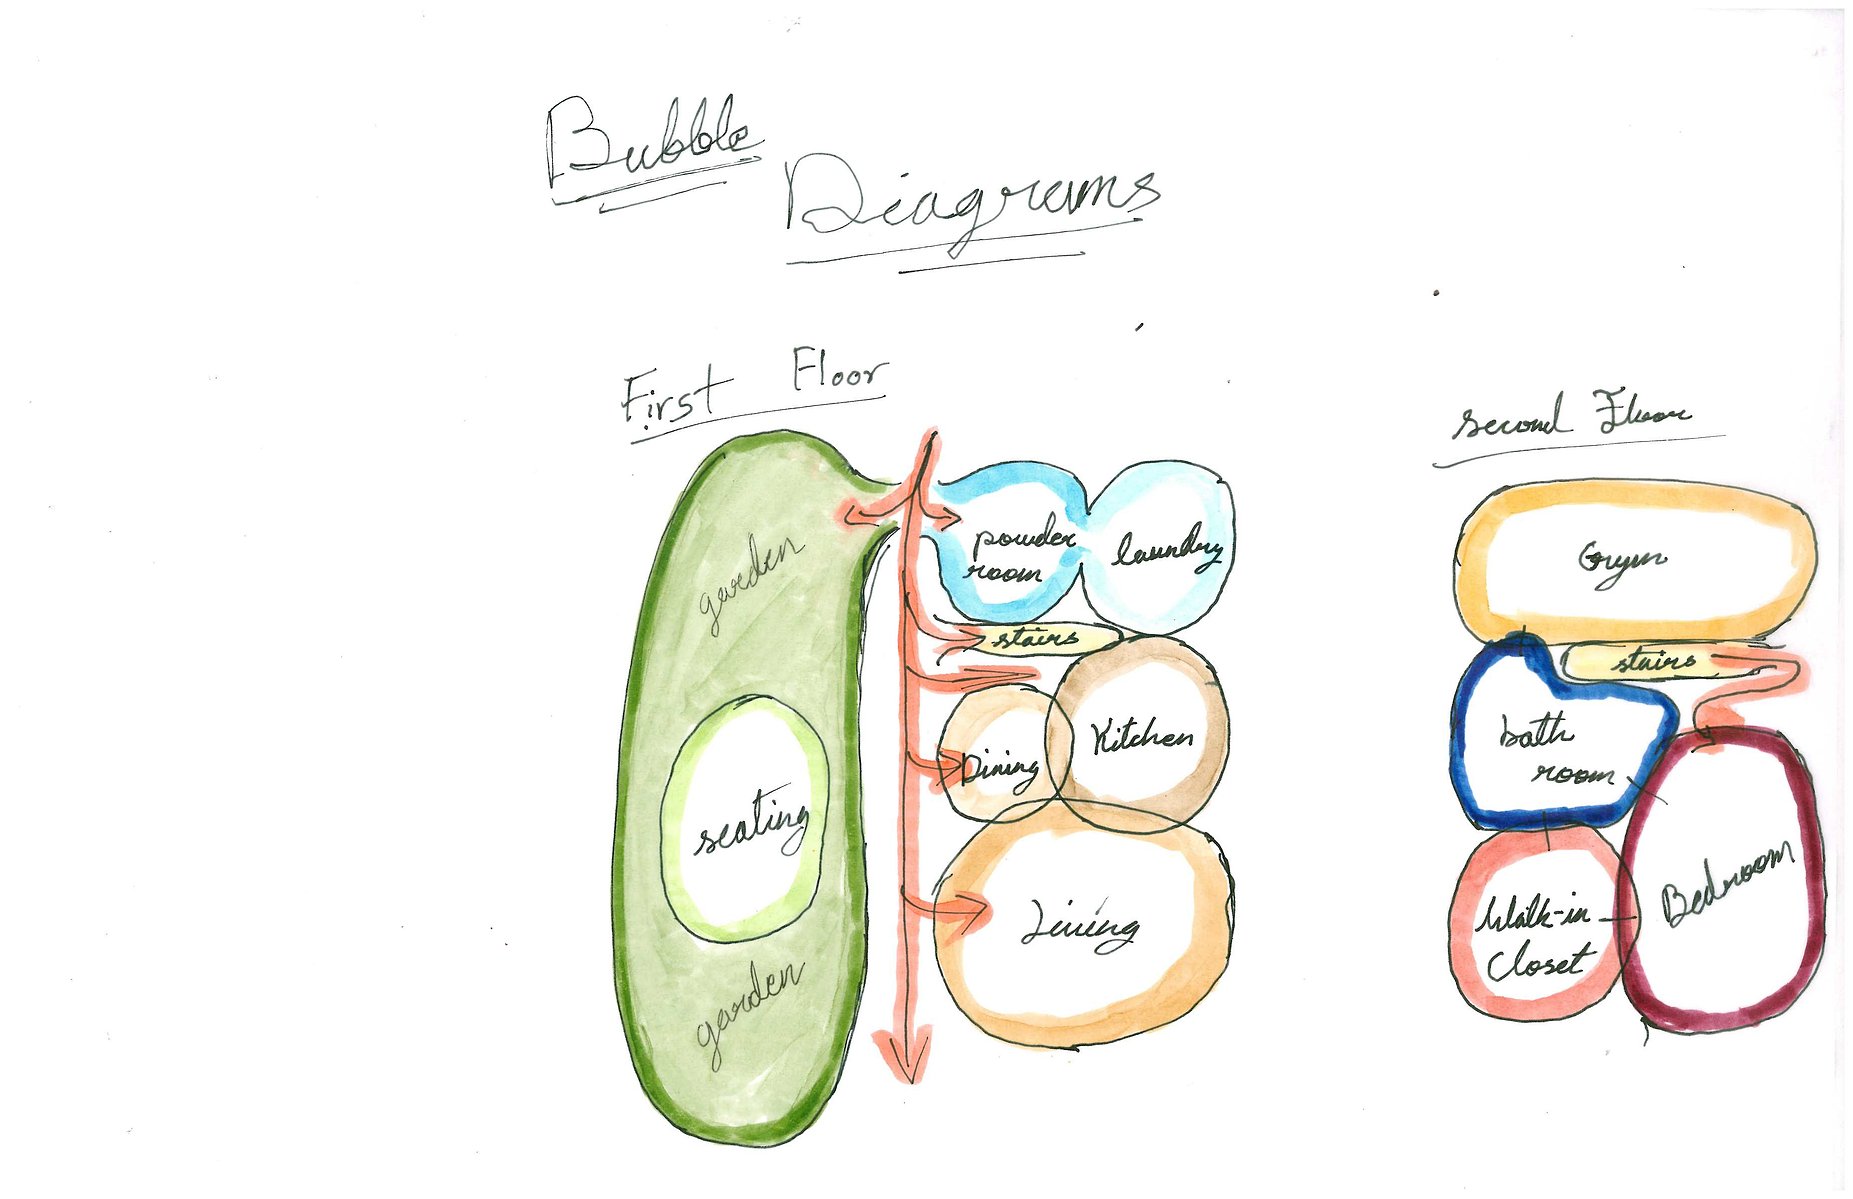 Bubble
Diagrams
First Floor
garden
seating
garden
powder
room
laundry
stairs
Dining
Kitchen
Living
second Floor
Gym
stairs
bath
room
Walk-in
Closet
Bedroom